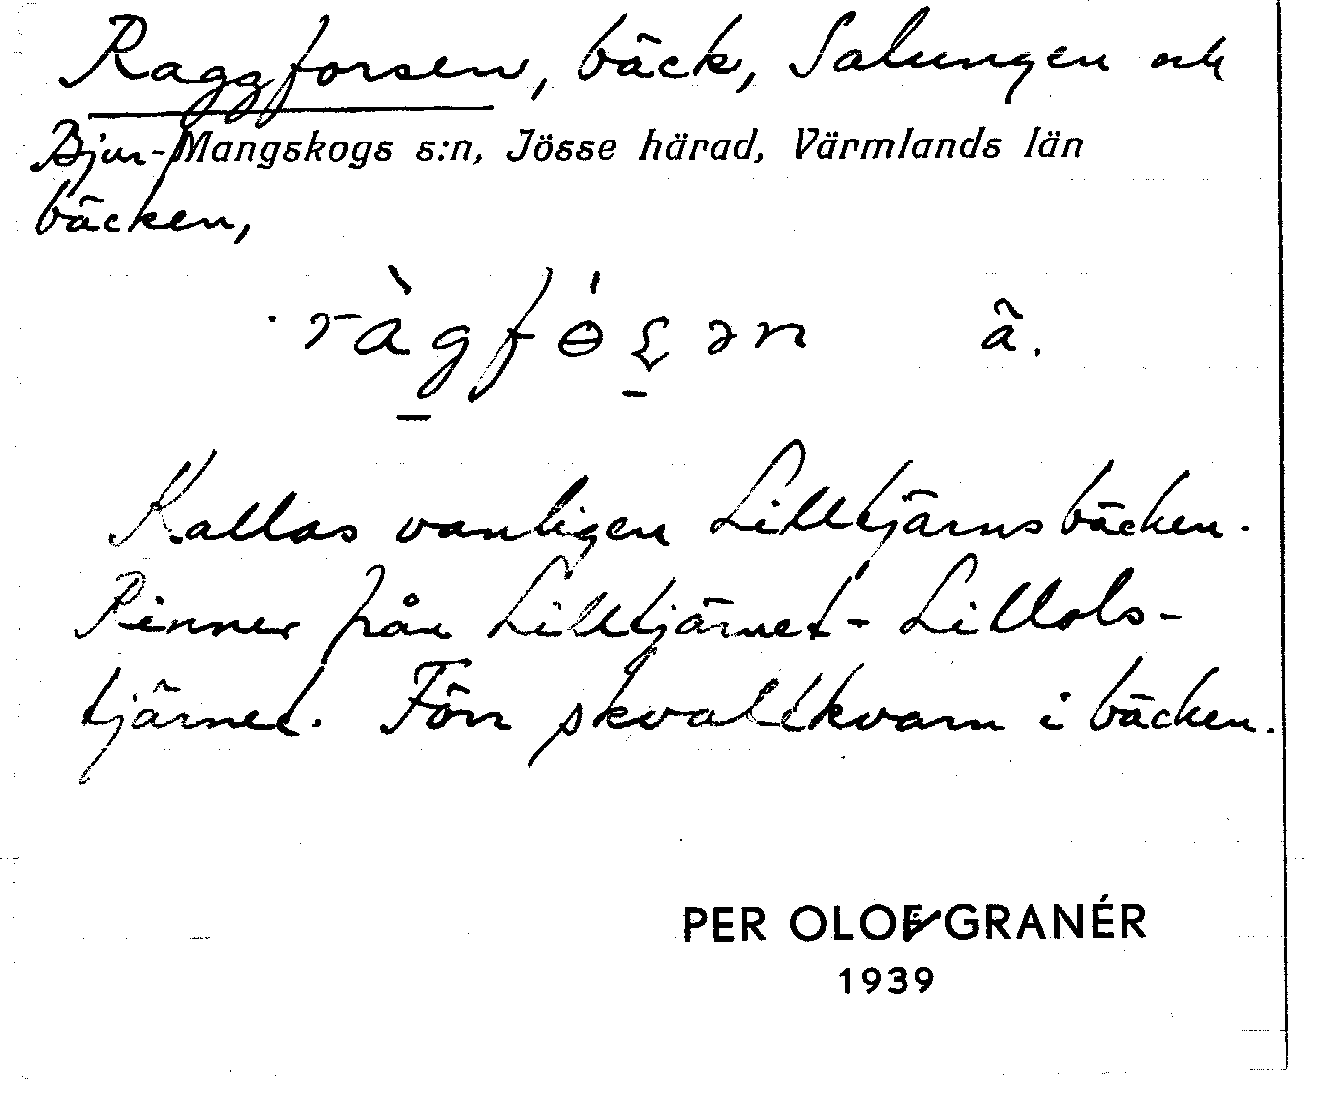 Raggforsen, bäck, Salungen och
Bjur- Mangskogs s:n, Jösse härad, Värmlands län
bäcken,
ã.
Kallas vanligen Lilltjärnsbäcken.
Rinner från Lilltjärnet - Lillols-
tjärnet. Förr skvaltkvarn i bäcken.
PER OLOF GRANÉR
1939